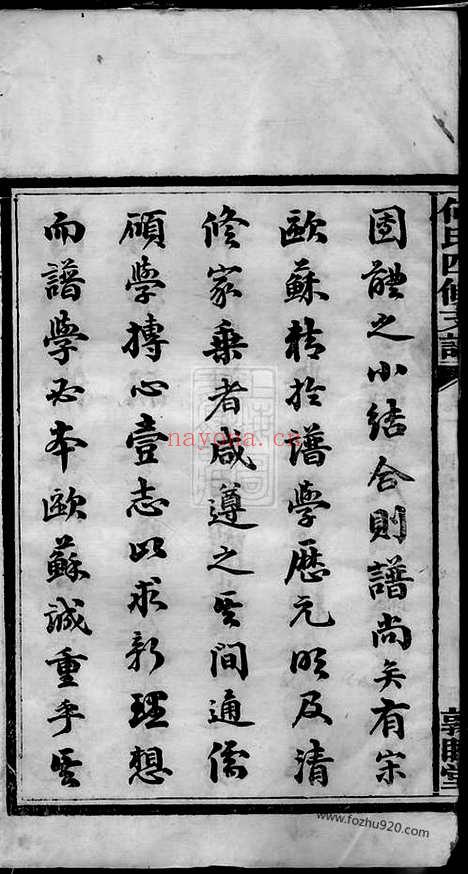 何氏四修支譜
固體之小結合則譜尚矣有宋
歐蘇精於譜學歷元明及清
修家乘者咸遵之其間通儒
碩學摶心壹志以求新理想
而譜學必本歐蘇誠重乎其
nayona.cn
www.fozhu920.com